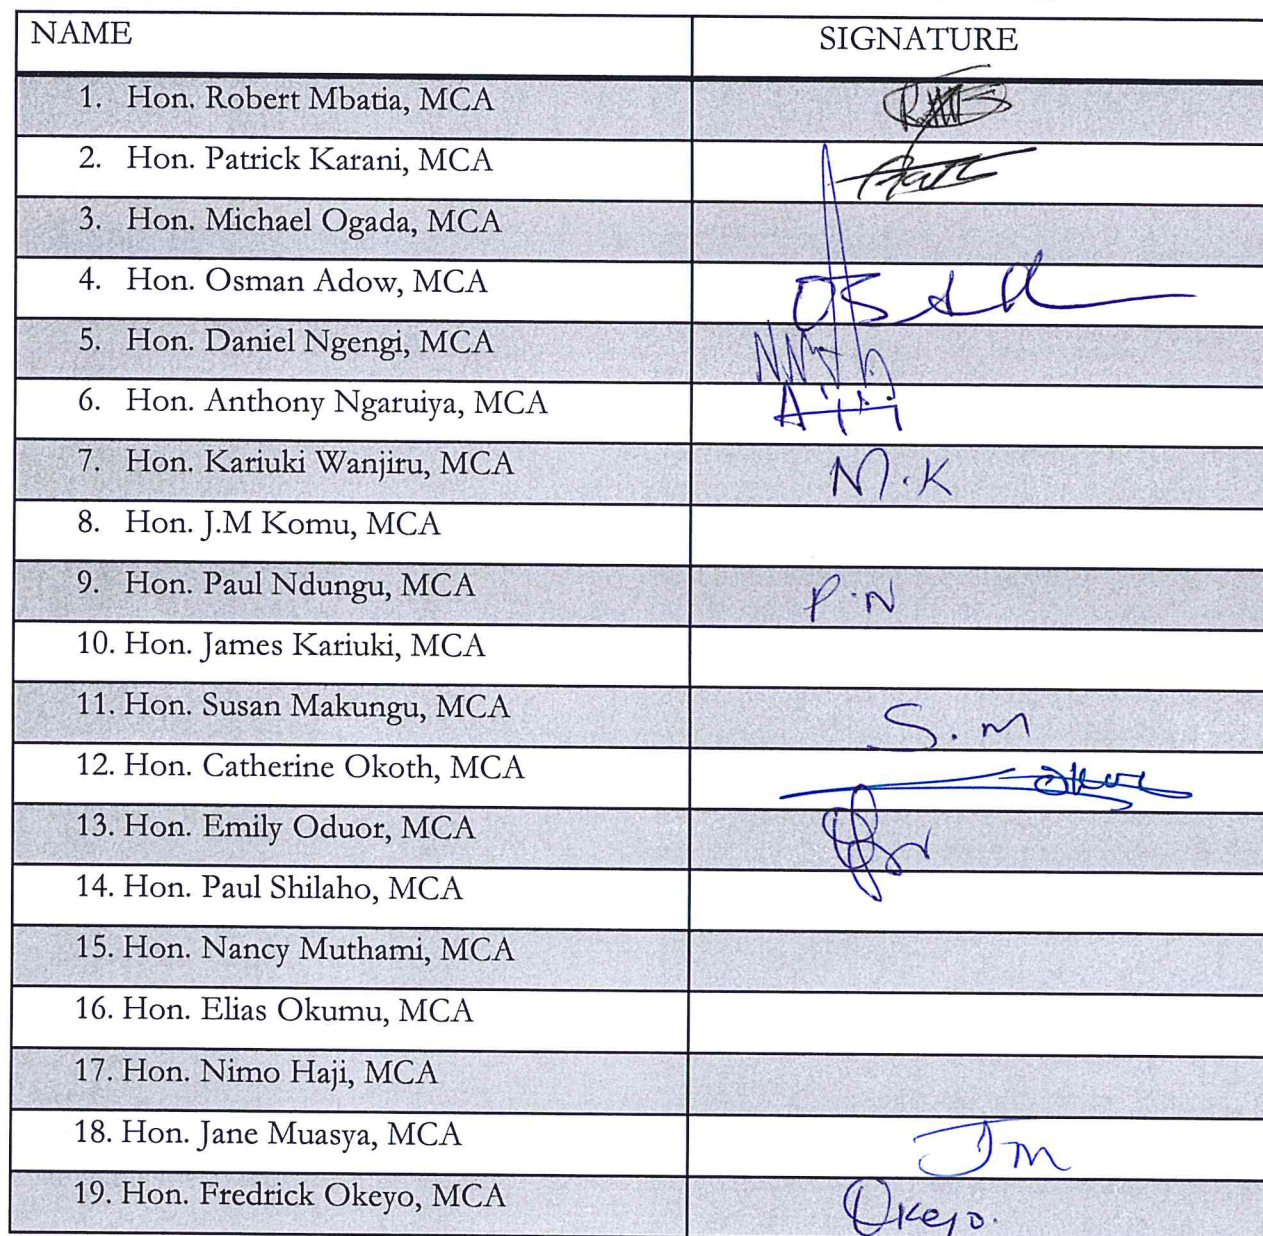 NAME SIGNATURE
1. Hon. Robert Mbatia, MCA
2. Hon. Patrick Karani, MCA
3. Hon. Michael Ogada, MCA
4. Hon. Osman Adow, MCA
5. Hon. Daniel Ngengi, MCA
6. Hon. Anthony Ngaruiya, MCA
7. Hon. Kariuki Wanjiru, MCA M.K
8. Hon. J.M Komu, MCA
9. Hon. Paul Ndungu, MCA P.N
10. Hon. James Kariuki, MCA
11. Hon. Susan Makungu, MCA S.M
12. Hon. Catherine Okoth, MCA
13. Hon. Emily Oduor, MCA
14. Hon. Paul Shilaho, MCA
15. Hon. Nancy Muthami, MCA
16. Hon. Elias Okumu, MCA
17. Hon. Nimo Haji, MCA
18. Hon. Jane Muasya, MCA Jm
19. Hon. Fredrick Okeyo, MCA Okeyo.